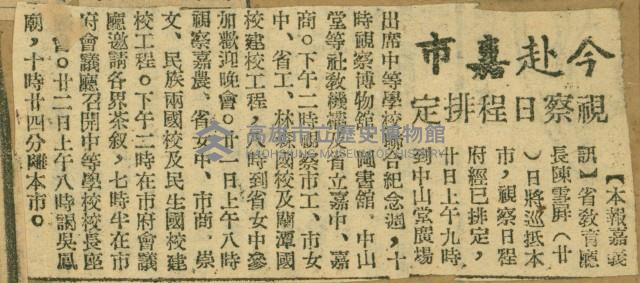 今赴嘉市
視察日程排定
【本報嘉義
訊】省教育廳
長陳雪屏(廿
)日將巡抵本
市，視察日程
府經已排定，
廿日上午九時
到中山堂廣場
出席中等學校聯合紀念週，十
時視察博物館、圖書館、中山
堂等社教機構及省立嘉中、嘉
商。下午二時視察市工、市女
中、省工、林森國校及蘭潭國
校建校工程，八時到省女中參
加歡迎晚會。廿一日上午八時
視察嘉農、省女中、市商、崇
文、民族兩國校及民生國校建
校工程。下午二時在市府會議
廳邀請各界茶敘，七時半在市
府會議廳召開中等學校校長座
會。廿二日上午八時謁吳鳳
廟，十時廿四分離本市。
高雄市立歷史博物館
KAOHSIUNG MUSEUM OF HISTORY